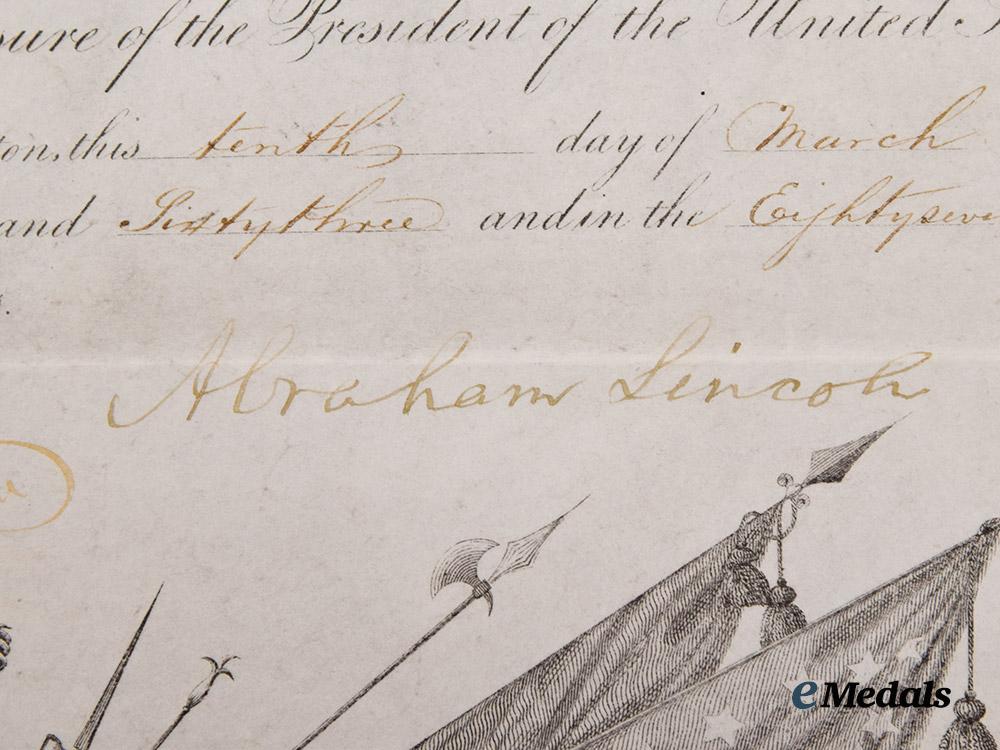 sure of the President of the United
ton, this tenth day of March
and Sixty three and in the Eighty seve
Abraham Lincoln
eMedals